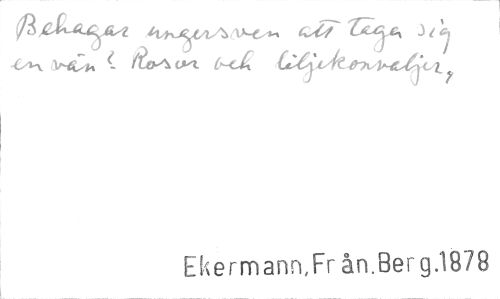 Behagar ungersven att taga sig
en vän? Rosor och liljekonvaljer,
Ekermann, Från.Berg.1878